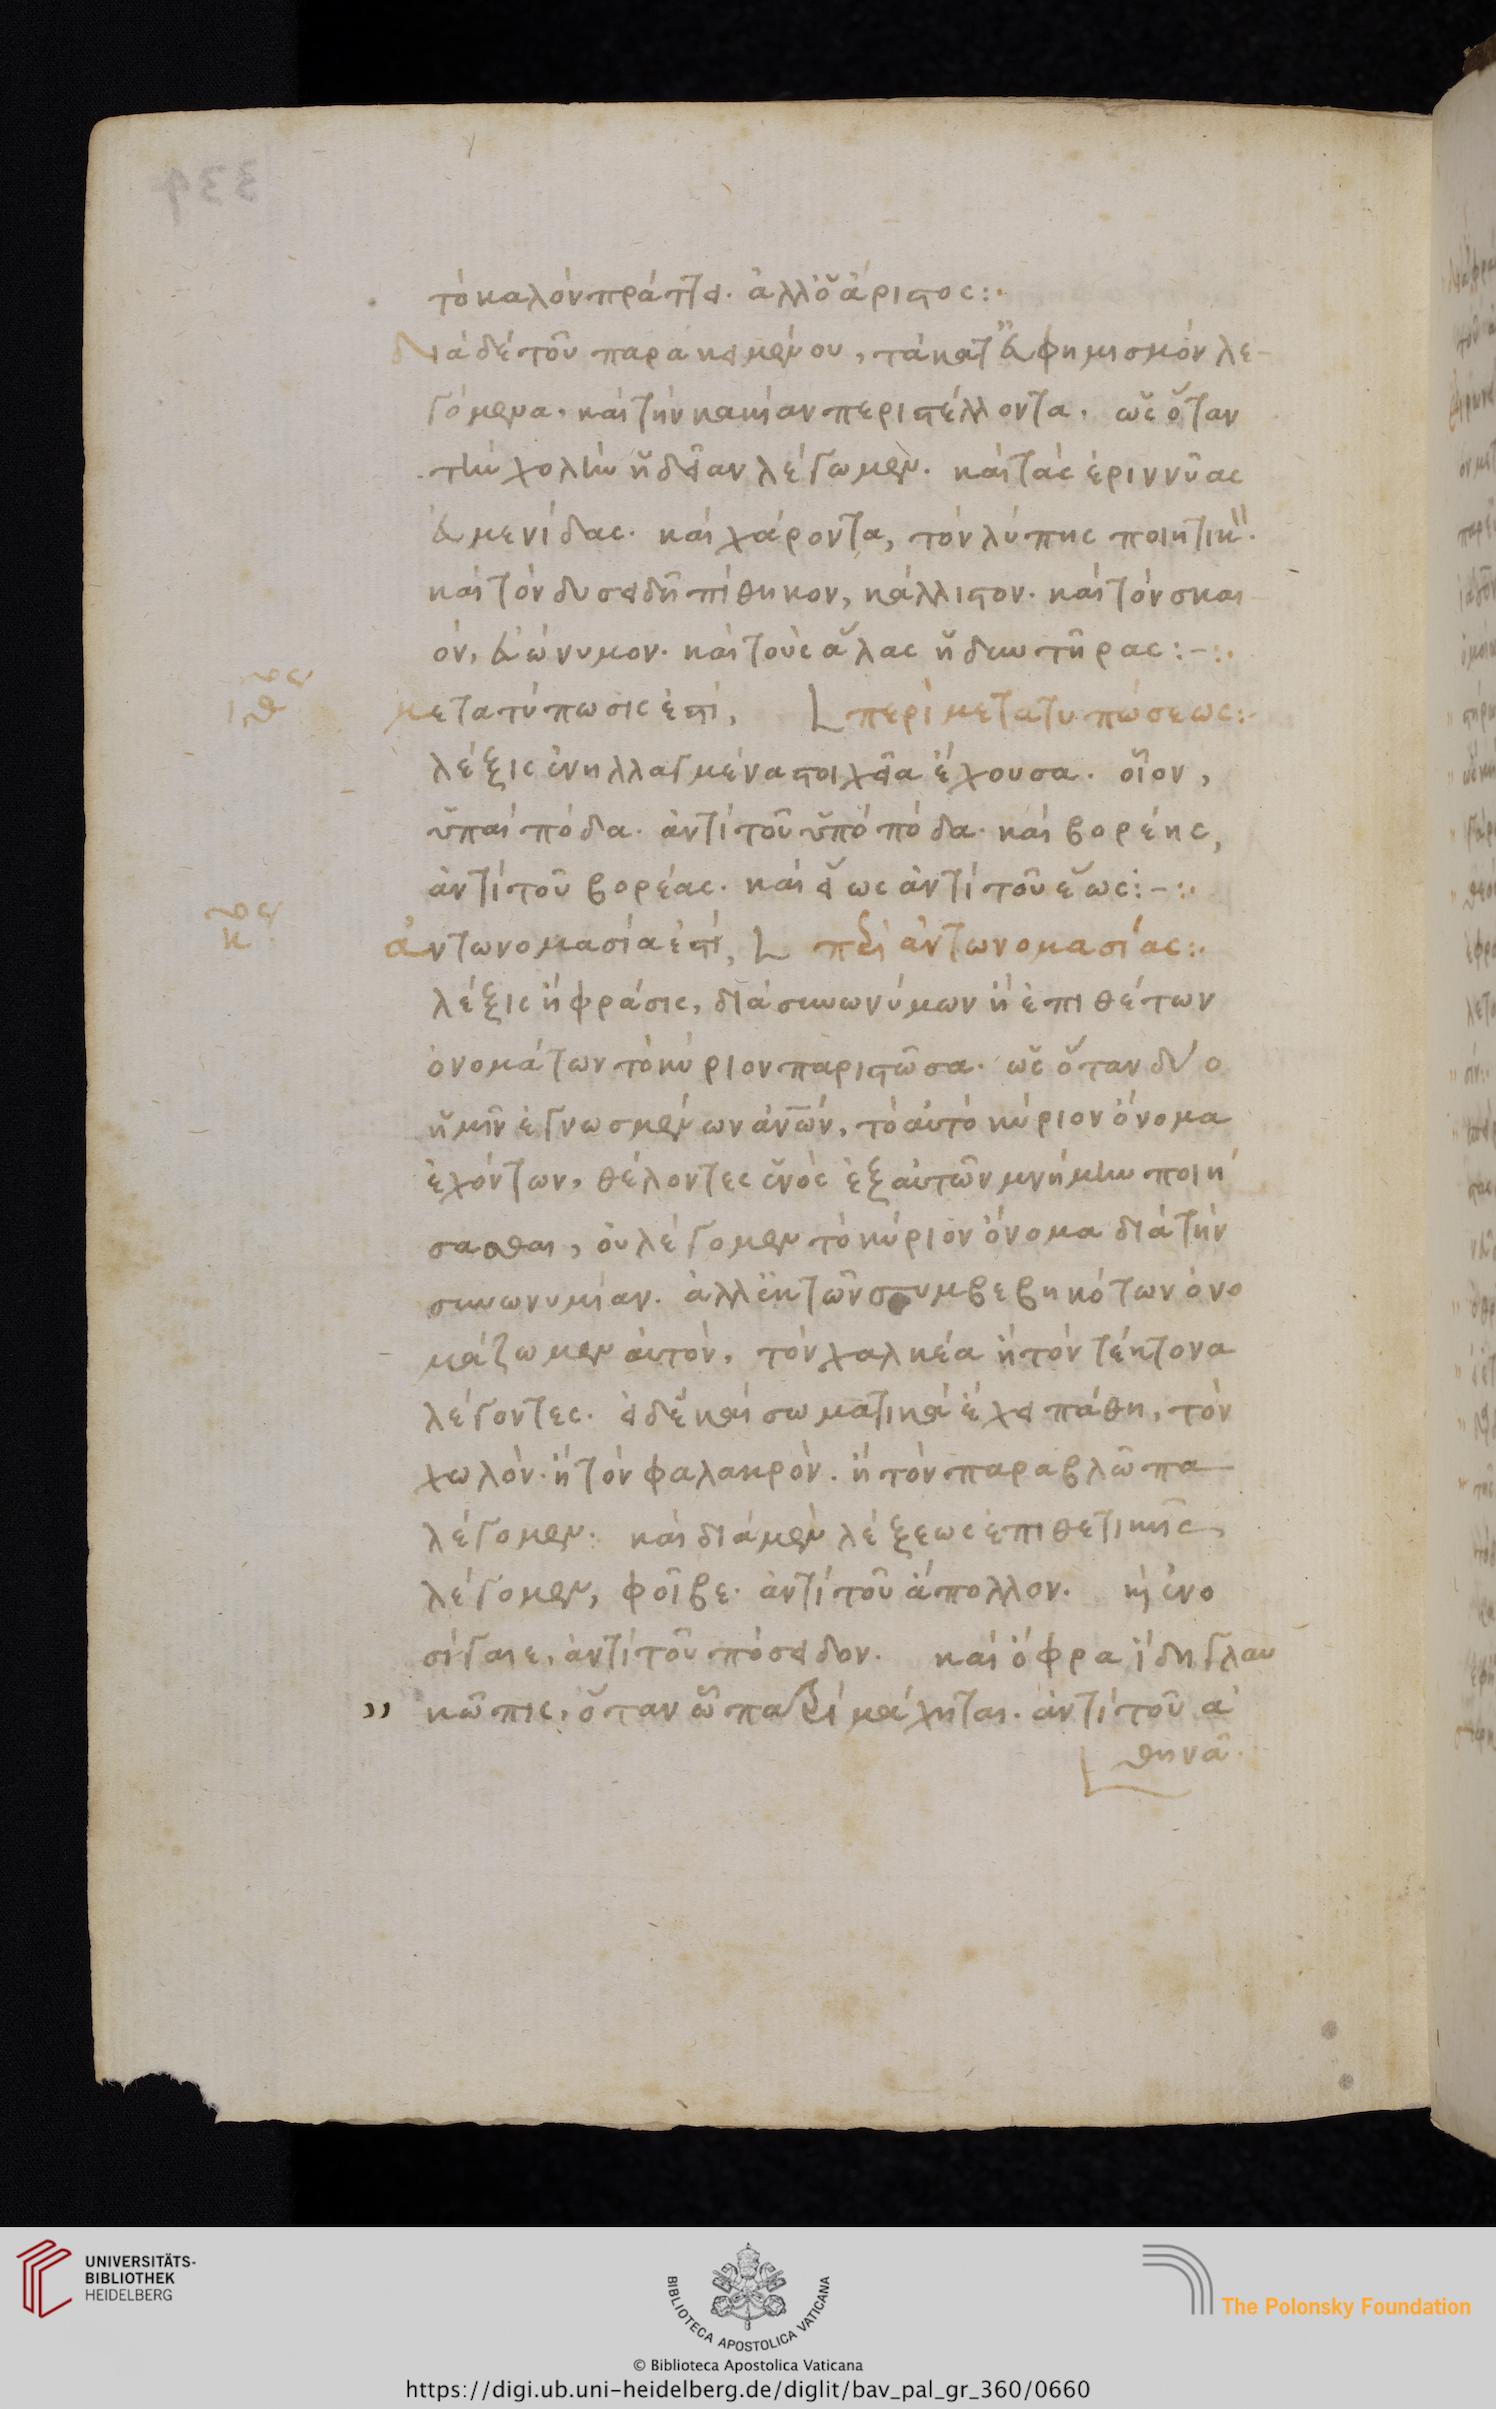 τὸ καλὸν πράττει. ἀλλ' ὁ ἄριστος:·
Διὰ δὲ τοῦ παρακειμένου, τὰ κατ' εὐφημισμὸν λε-
γόμενα. καὶ τὴν κακίαν περιστέλλοντα. ὡς ὅταν
τὴν χολὴν ἡδεῖαν λέγωμεν. καὶ τὰς ἐριννῦας
εὐμενίδας. καὶ χάροντα, τὸν λύπης ποιητικ.
καὶ τὸν δυσειδῆ πίθηκον, κάλλιστον. καὶ τὸν σκαι-
όν, εὐώνυμον. καὶ τοὺς ἅλας ἡδυντῆρας:-:·
ιθ
μετατύπωσις ἐστί, περὶ μετατυπώσεως:·
λέξις ἐνηλλαγμένα στοιχεῖα ἔχουσα. οἷον,
ὑπαὶ πόδα. ἀντὶ τοῦ ὑπὸ πόδα. καὶ βορέης,
ἀντὶ τοῦ βορέας. καὶ εἵως ἀντὶ τοῦ ἕως:-:·
κ
ἀντωνομασία ἐστί, περὶ ἀντωνομασίας:·
λέξις ἢ φράσις, διὰ συνωνύμων ἢ ἐπιθέτων
ὀνομάτων τὸ κύριον παριστῶσα. ὡς ὅταν δύο
ἡμῖν ἐγνωσμένων ἀνῶν, τὸ αὐτὸ κύριον ὄνομα
ἐχόντων, θέλοντες ἑνὸς ἐξ αὐτῶν μνήμην ποιή
σασθαι, οὐ λέγομεν τὸ κύριον ὄνομα διὰ τὴν
συνωνυμίαν. ἀλλ' ἐκ τῶν συμβεβηκότων ὀνο
μάζωμεν αὐτὸν, τὸν χαλκέα ἢ τὸν τέκτονα
λέγοντες. εἰ δὲ καὶ σωματικὰ ἔχει πάθη, τὸν
χωλὸν. ἢ τὸν φαλακρὸν. ἢ τὸν παραβλῶπα
λέγομεν. καὶ διὰ μὲν λέξεως ἐπιθετικῆς
λέγομεν, φοῖβε. ἀντὶ τοῦ ἄπολλον. καὶ ἐνο
σίγαιε, ἀντὶ τοῦ πόσειδον. καὶ ὄφρα ἴδη γλαυ
κῶπις, ὅταν ᾧ πατρὶ μάχηται. ἀντὶ τοῦ ἀ
θηνᾶ.
UNIVERSITÄTS-
BIBLIOTHEK
HEIDELBERG
BIBLIOTECA APOSTOLICA VATICANA
The Polonsky Foundation
© Biblioteca Apostolica Vaticana
https://digi.ub.uni-heidelberg.de/diglit/bav_pal_gr_360/0660